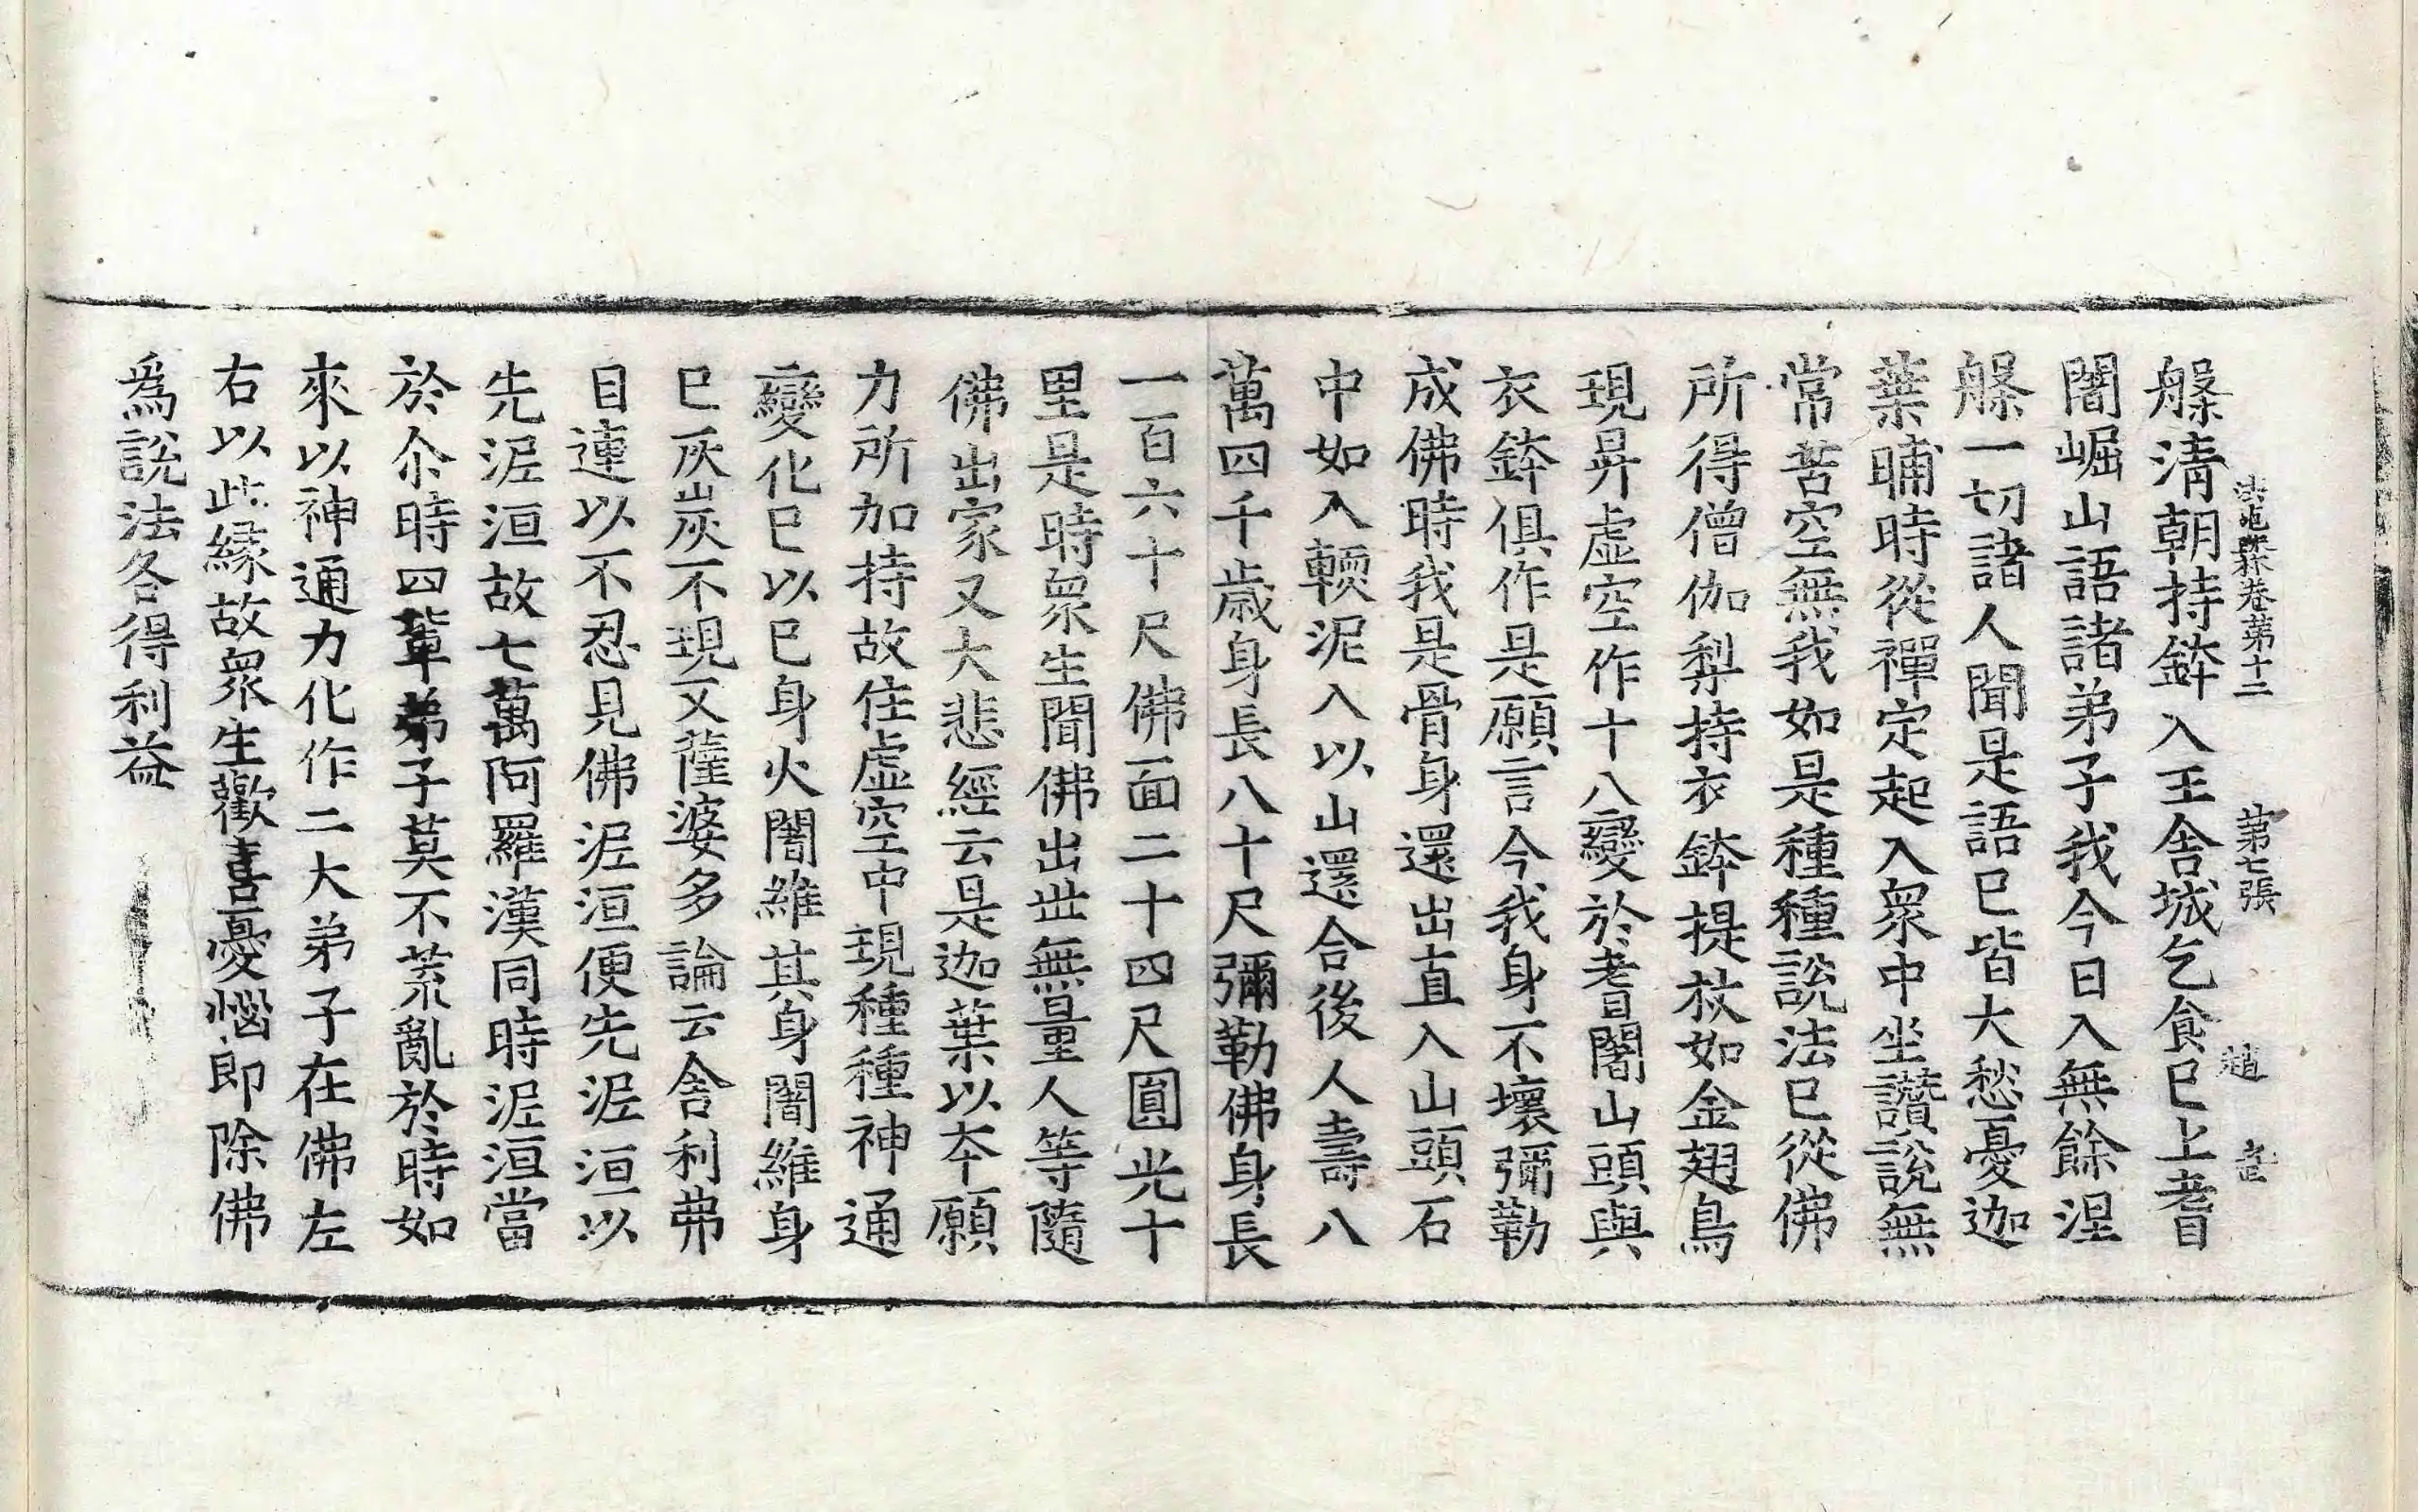 法苑珠林卷第十二 第七張 趙
槃清朝持鉢入王舍城乞食已上耆
闍崛山語諸弟子我今日入無餘涅
槃一切諸人聞是語已皆大愁憂迦
葉晡時從禪定起入衆中坐讚說無
常苦空無我如是種種說法已從佛
所得僧伽梨持衣鉢提杖如金翅鳥
現昇虛空作十八變於耆闍山頭與
衣鉢俱作是願言今我身不壞彌勒
成佛時我是骨身還出直入山頭石
中如入輭泥入以山還合後人壽八
萬四千歲身長八十尺彌勒佛身長
一百六十尺佛面二十四尺圓光十
里是時衆生聞佛出世無量人等隨
佛出家又大悲經云是迦葉以本願
力所加持故住虛空中現種種神通
變化已以已身火闍維其身闍維身
已灰炭不現又薩婆多論云舍利弗
目連以不忍見佛泥洹便先泥洹以
先泥洹故七萬阿羅漢同時泥洹當
於尒時四輩弟子莫不荒亂於時如
來以神通力化作二大弟子在佛左
右以此緣故衆生歡喜憂惱即除佛
爲說法各得利益